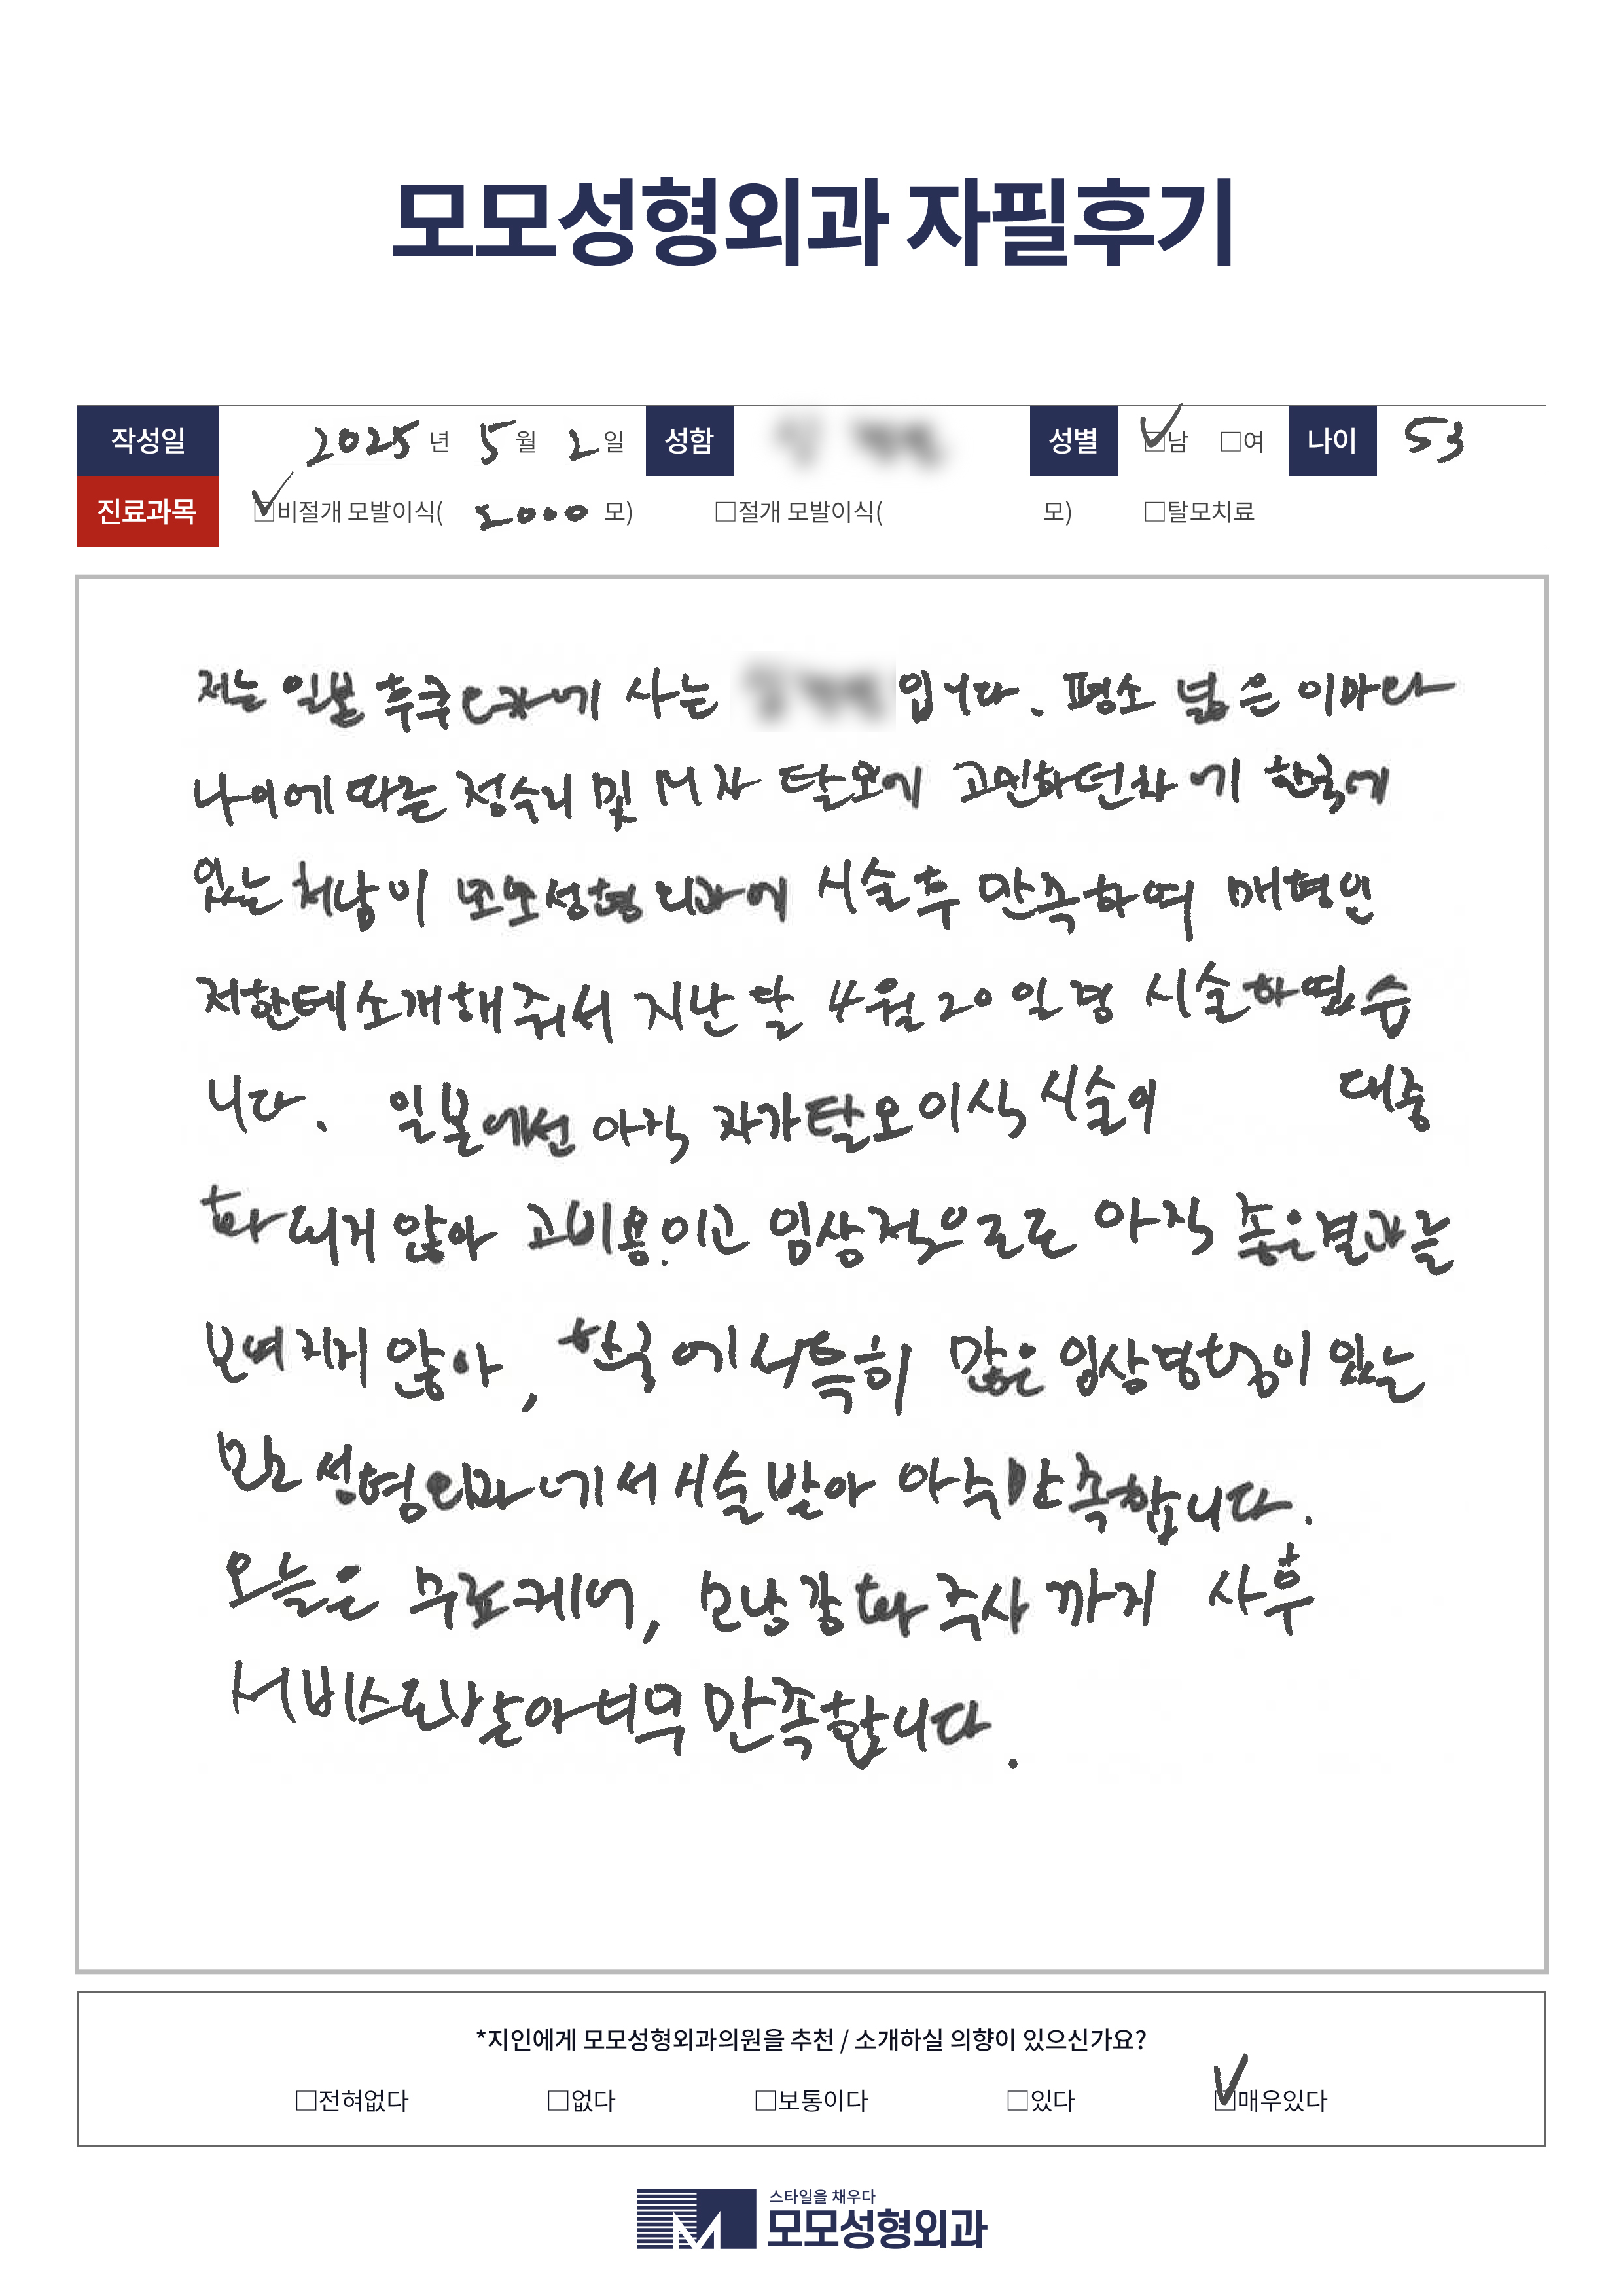 모모성형외과 자필후기
작성일 2025 년 5 월 2 일 성함 성별 ☑남 □여 나이 53
진료과목 ☑비절개 모발이식( 2000 모) □절개 모발이식( 모) □탈모치료
저는 일본 후쿠오카에 사는 입니다. 평소 넓은 이마라
나이에 따른 정수리 및 M자 탈모에 고민하던차에 한국에
있는 처남이 모모성형외과에 시술후 만족하여 매형인
저한테 소개해줘서 지난달 4월 20일경 시술하였습
니다. 일본에선 아직 자가탈모이식 시술이 대중
화 되게 않아 고비용이고 임상적으로도 아직 좋은결과를
보여지지 않아, 한국에서 특히 많은 임상경험이 있는
모모성형외과에서 시술받아 아주만족합니다.
오늘은 무료케어, 모낭강화주사까지 사후
서비스도 받아 너무 만족합니다.
*지인에게 모모성형외과의원을 추천 / 소개하실 의향이 있으신가요?
□전혀없다 □없다 □보통이다 □있다 ☑매우있다
스타일을 채우다
모모성형외과